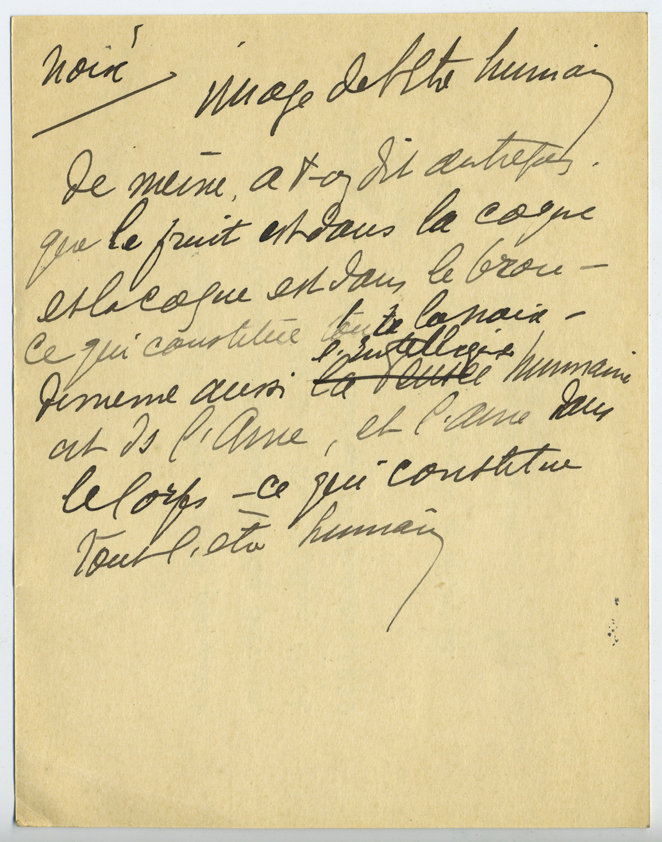 Noix
image de l'être humain
De même, a t-on dit autrefois.
que le fruit est dans la coque
et la coque est dans le brou —
ce qui constitue toute la noix —
l'intelligence
de meme aussi la pensée humaine
est ds l'Ame, et l'ame dans
le Corps — ce qui constitue
tout l'être humain